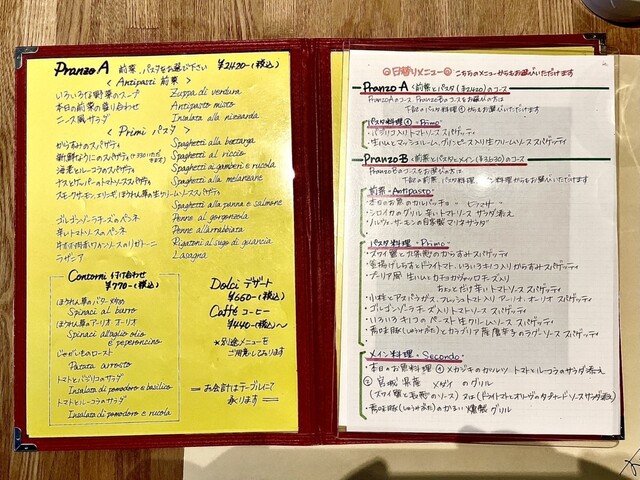 Pranzo A 前菜、パスタをお選び下さい ¥2420-(税込)
< Antipasti 前菜 >
いろいろな野菜のスープ Zuppa di verdura
本日の前菜の盛り合わせ Antipasto misto
ニース風サラダ Insalata alla nizzarda
< Primi パスタ >
からすみのスパゲティ Spaghetti alla bottarga
新鮮なうにのスパゲティ Spaghetti al riccio
海老とルーコラのスパゲティ Spaghetti ai gamberi e rucola
ナスとモッツァレラのトマトソーススパゲティ Spaghetti alla melanzane
スモークサーモン、エリンギ、ほうれん草の生クリームソーススパゲティ
Spaghetti alla panna e salmone
ゴルゴンゾーラチーズのペンネ Penne al gorgonzola
辛いトマトソースのペンネ Penne all'arrabbiata
牛ホホ肉赤ワインソースのリガトーニ Rigatoni al sugo di guancia
ラザニア Lasagna
Contorni 付け合わせ
¥770-(税込)
ほうれん草のバター炒め
Spinaci al burro
ほうれん草のアーリオ・オーリオ
Spinaci all'aglio olio
e peperoncino
じゃがいものロースト
Patata arrosto
トマトとバジリコのサラダ
Insalata di pomodoro e basilico
トマトとルーコラのサラダ
Insalata di pomodoro e rucola
Dolci デザート
¥660-(税込)
Caffé コーヒー
¥440-(税込)~
※別途メニューを
ご用意しております
— お会計はテーブルにて
承ります —
日替りメニュー こちらのメニューからもお選びいただけます
Pranzo A <前菜とパスタ(¥2420)のコース
Pranzo Aのコース、Pranzo Bのコースをお選びの方は
下記のパスタ料理①からもお選びいただけます
パスタ料理① ・Primo・
・バジリコ入りトマトソース スパゲッティ
・生ハムとマッシュルーム、グリンピース入り生クリームソース スパゲッティ
Pranzo B <前菜とパスタとメイン(¥3630)のコース
Pranzo Bのコースをお選びの方は
下記の前菜、パスタ料理、メイン料理からもお選びいただけます
前菜 ・Antipasto・
・本日のお魚のカルパッチョ
・シロイカのグリル 辛いトマトソース サラダ添え
・ノルウェーサーモンの自家製マリネサラダ
パスタ料理 ・Primo・
・ズワイ蟹と九条葱のからすみスパゲッティ
・釜揚げしらすとドライトマト、いろいろキノコ入りからすみスパゲッティ
・プーリア風 生ハムとカチョカヴァッロチーズ入り
ちょっとだけ辛いトマトソース スパゲッティ
・小柱とアスパラガス、フレッシュトマト入りアーリオ・オーリオ スパゲッティ
・ゴルゴンゾーラチーズ入りトマトソース スパゲッティ
・いろいろキノコのペースト 生クリームソース スパゲッティ
・青味豚(しゅうみとん)とカラブリア産唐辛子のラグーソース スパゲッティ
メイン料理 ・Secondo・
・本日のお魚料理 ① メカジキのカツレツ トマトとルーコラのサラダ添え
② 宮城県産 メダイのグリル